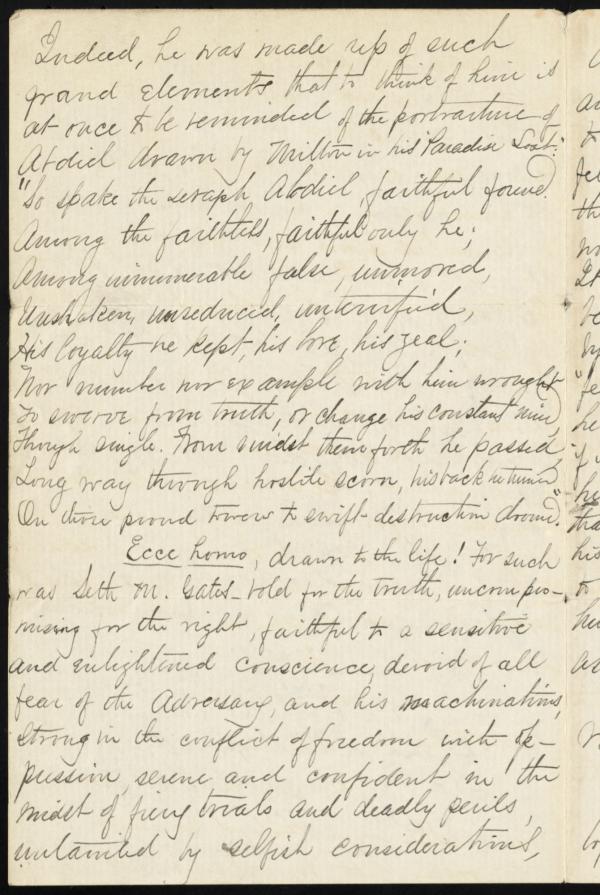 Indeed, he was made up of such
grand elements that to think of him is
at once to be reminded of the portraiture of
Abdiel drawn by Milton in his "Paradise Lost":
"So spake the seraph Abdiel, faithful found.
Among the faithless, faithful only he;
Among innumerable false, unmoved,
Unshaken, unseduced, unterrified,
His loyalty he kept, his love, his zeal;
Nor number nor example with him wrought
To swerve from truth, or change his constant mind,
Though single. From midst them forth he passed,
Long way through hostile scorn,
On those proud towers to swift destruction doomed."
Ecce homo, drawn to the life! For such
was Seth M. Gates—bold for the truth, uncompro-
mising for the right, faithful to a sensitive
and enlightened conscience, devoid of all
fear of the Adversary, and his machinations,
strong in the conflict of freedom with op-
pression, serene and confident in the
midst of fiery trials and deadly perils,
untainted by selfish considerations,